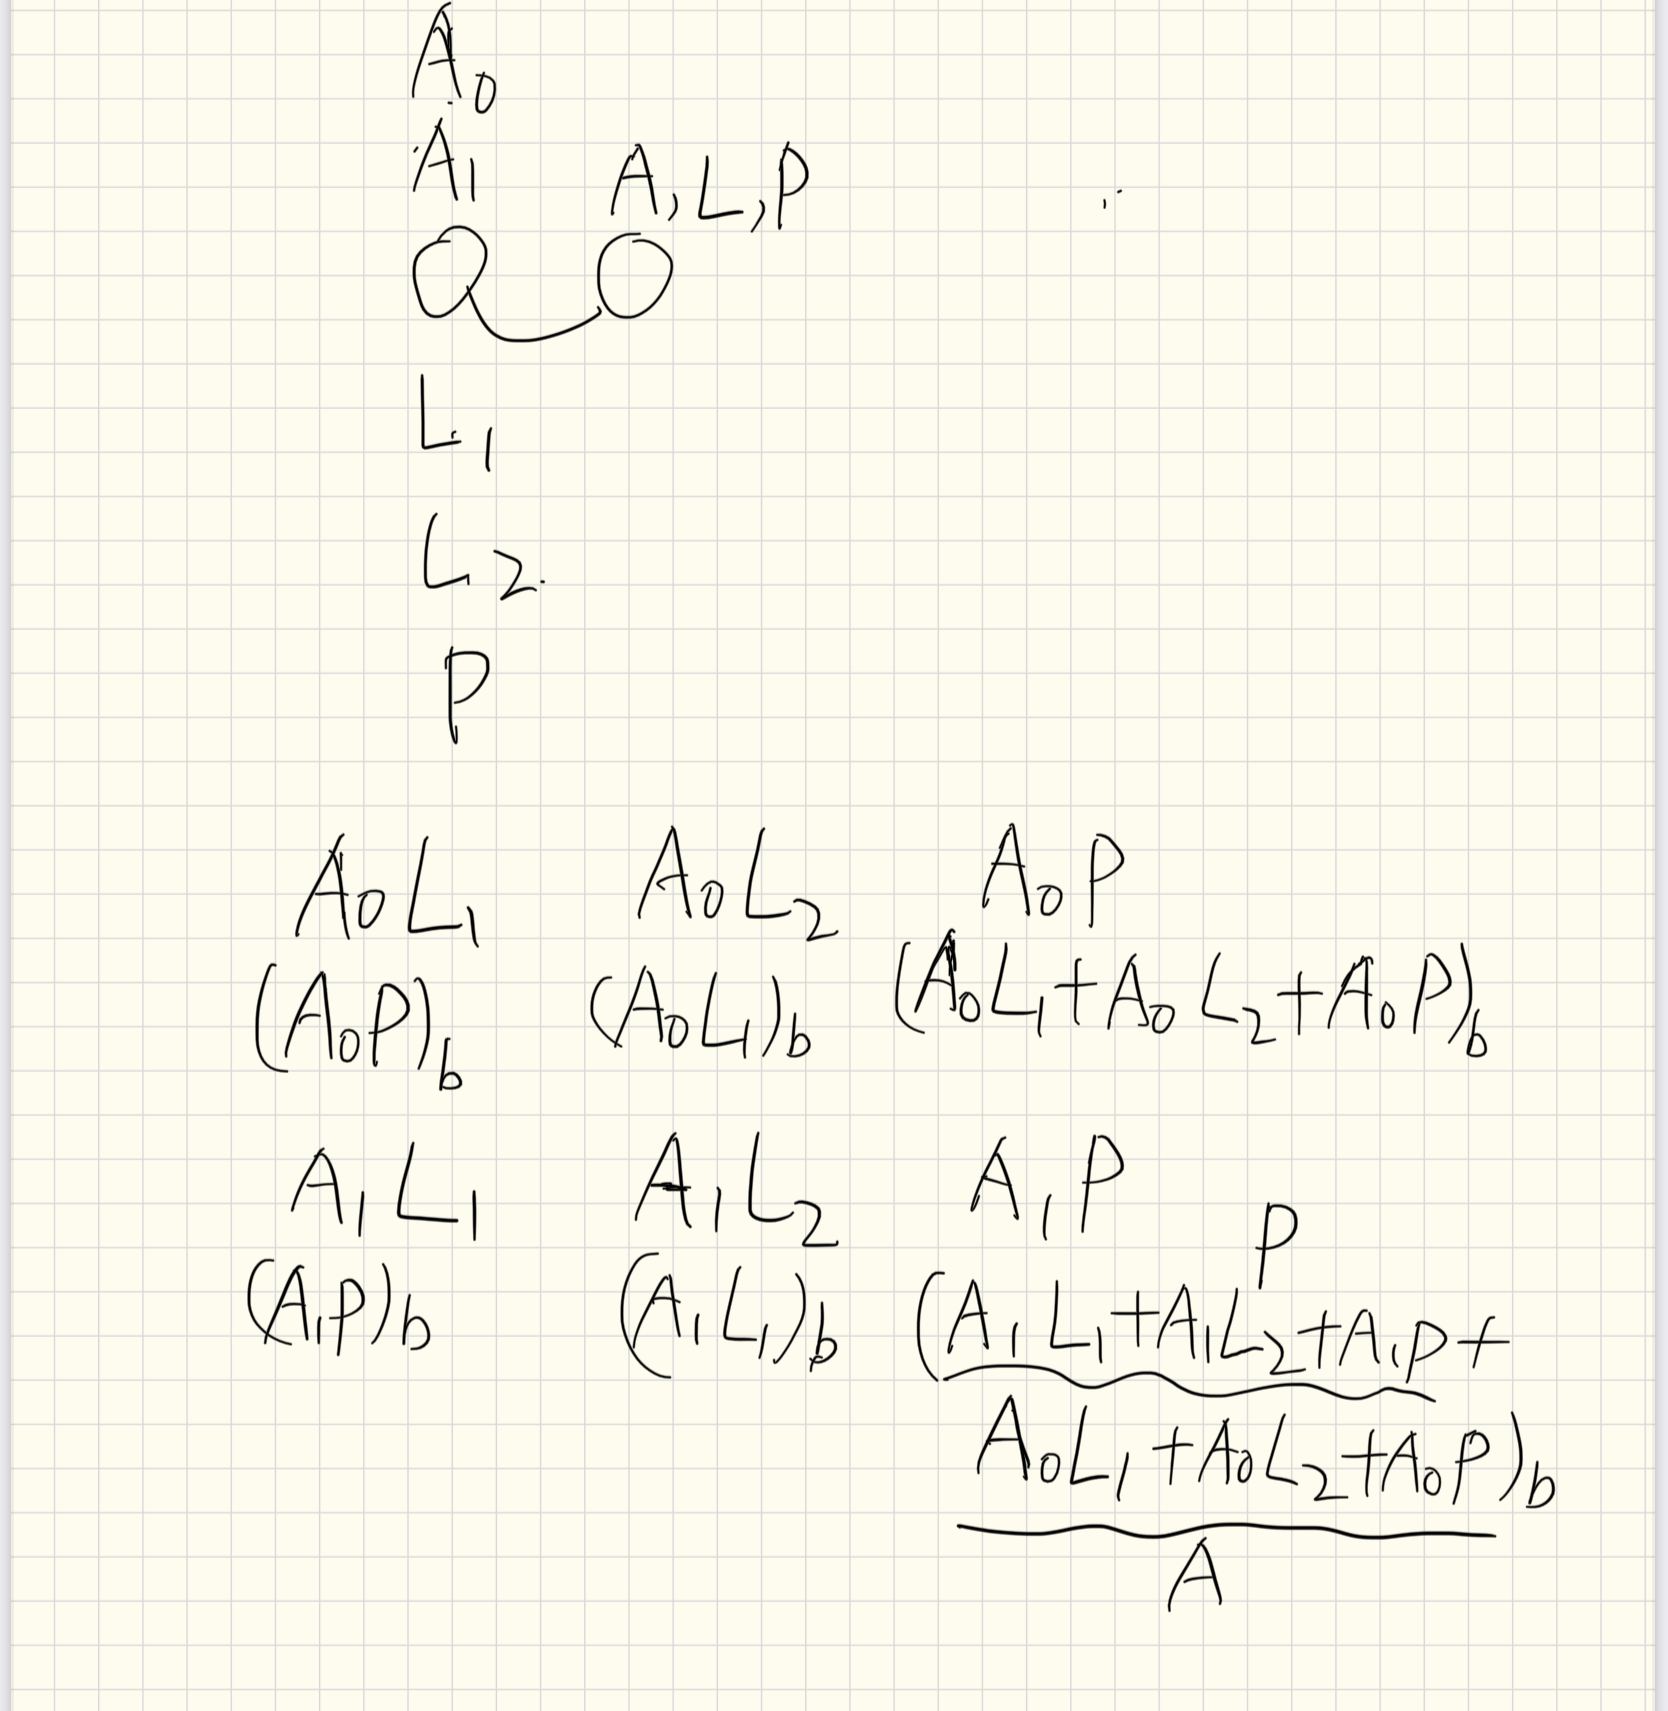 A₀
A₁ A, L, P
L₁
L₂
P
A₀L₁ A₀L₂ A₀P
(A₀P)b (A₀L₁)b (A₀L₁+A₀L₂+A₀P)b
A₁L₁ A₁L₂ A₁P
P
(A₁P)b (A₁L₁)b (A₁L₁+A₁L₂+A₁P+
A₀L₁+A₀L₂+A₀P)b
A